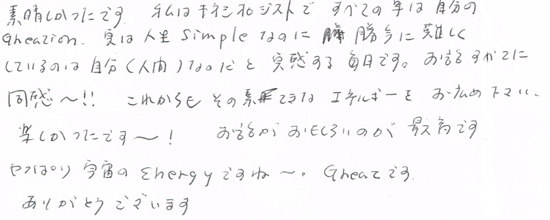 素晴しかったです。私はキネシオロジストですべての事は自分の
Creation. 実は人生 Simple なのに 勝手に難しく
しているのは自分(人間)なのだと実感する毎日です。お話すべてに
同感〜!! これからもその素敵なエネルギーをお広め下さい。
楽しかったです〜! お話がおもしろいのが最高です
やっぱり宇宙のEnergyですね〜。Greatです。
ありがとうございます